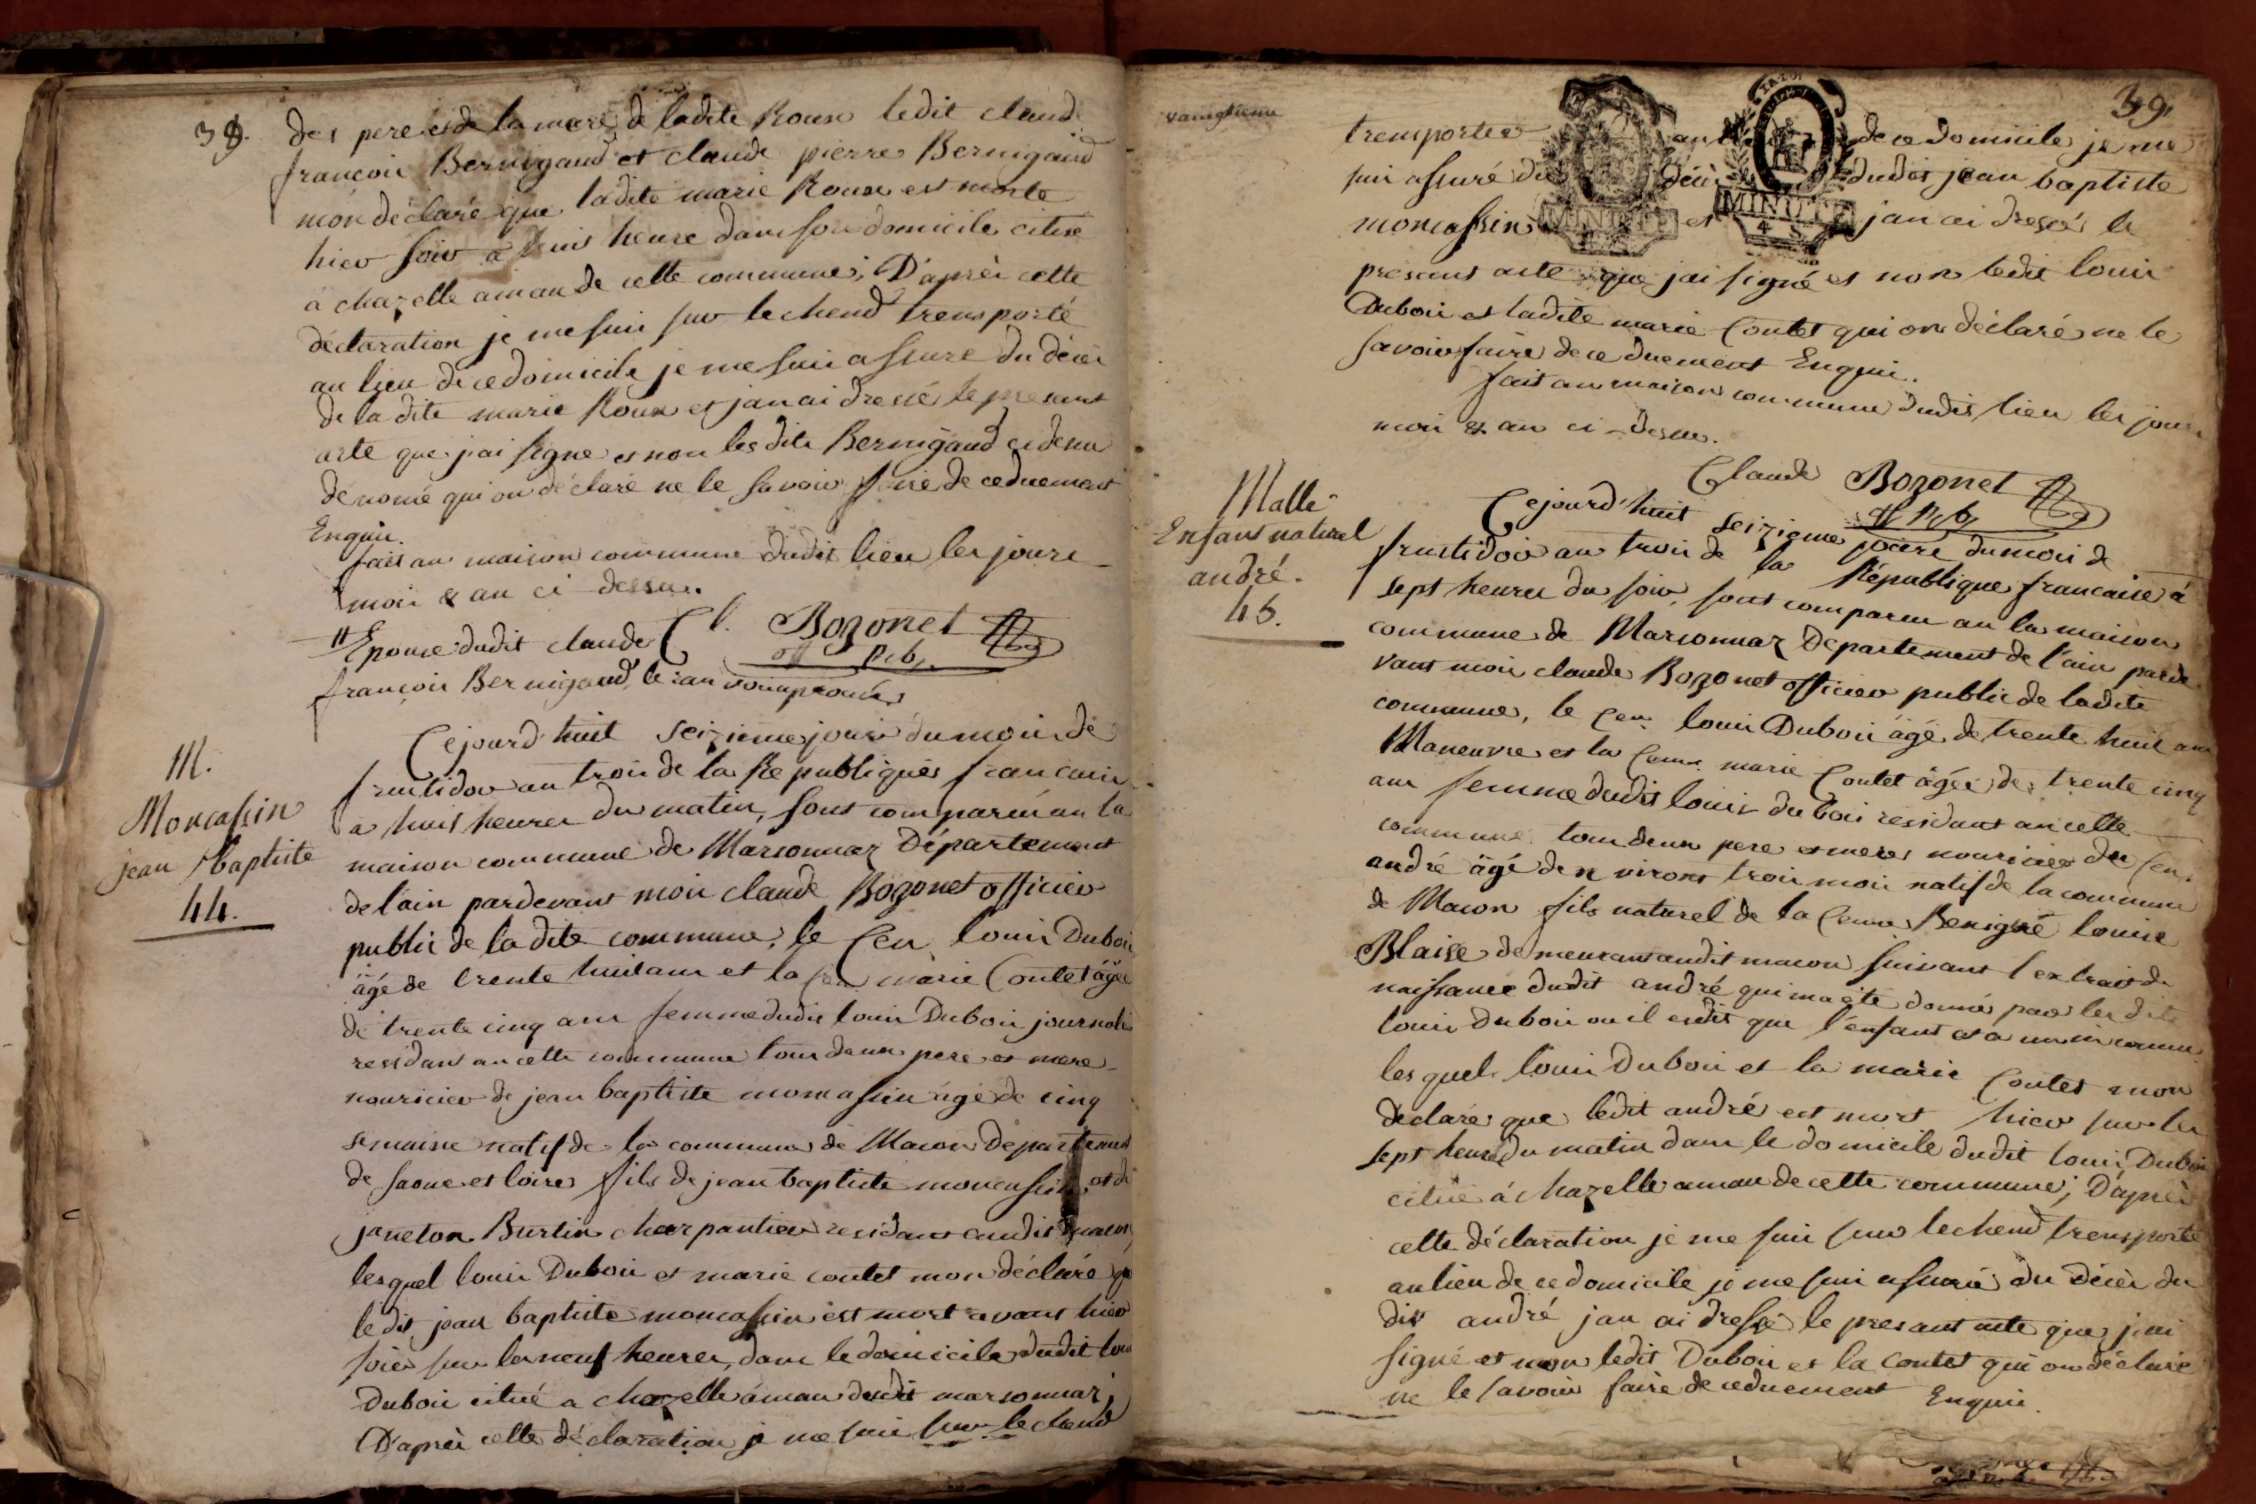 38.
des pere et de la mere de ladite Roux ledit claude
francoii Bernigaud et claude pierre Bernigaud
mon déclaré que ladite marie Roux est morte
hier soir a huit heure dans son domicile citué
á chazelle amau de cette commune; D'aprèi cette
déclaration je me suii sur le chend transporté
au lieu de ce domicile je me suii assure du décèi
de la dite marie Roux et jan ai dressé le presant
acte que j'ai signé et non les dite Bernigaud ci desu
dénomé qui on déclaré ne le savoir faire de ce duement
Enquii.
fait au maison commune dudit lieu les jours
moii & an ci-dessu.
Cl. Bozonet
off Pub
Epouse dudit claude
françoii Bernigaud, le ranvoii aprouvé
M.
Moncassin
jean Baptiste
44.
Cejourd'huit seizieme jour du moii de
fructidor an troii de la Republiques francaii
a huit heures du matin, sont comparu an la
maison commune de Marsonnaz Département
de l'ain pardevant moii claude Bozonet officier
public de la dite commune, le Cen louii Duboii
âgé de trente huit ans et la marie Contet âgée
de trente cinq ans femme dudit louii Duboii journali
residant an cette commune tous deux pere et mere
nouricier de jean baptiste moncassin âgé de cinq
semaine natif de la commune de Macon Departement
de saone et loire fils de jean baptiste moncassin et de
janeton Burtin charpantier residant audit macon,
lesquel louii Duboii et marie contet mon déclaré que
le dit jean baptiste moncassin est mort avant hier
soir sur les neuf heures, dans le domicile dudit loui
Duboii citué a chazelle amau dudit marsonnaz;
D'aprèi cette déclaration je me suii sur le chend
vaingtieme
39
transporter au lieu de ce domicile je me
suii assuré du décèi dudit jean baptiste
moncassin et jan ai dressé le
MINUTE
MINUTE
4 S
présent acte que j'ai signé et non ledit louii
Duboii et ladite marie Contet qui on déclaré ne le
savoir faire de ce duement Enquii.
fait au maison commune dudit lieu les jour
moii & an ci-dessu.
Claude Bozonet
off Pub
Malle
Enfant naturel
andré.
45.
Cejourd'huit seizieme jour du moii de
fructidor an troii de la République francaise á
sept heures du soir, sont comparu an la maison
commune de Marsonnaz Département de l'ain parde
vant moii claude Bozonet officier public de ladite
commune, le Cen louii Duboii âgé de trente huit ans
Maneuvre et la Cenne marie Contet âgée de trente cinq
ans femme dudit louii duboii residant an cette
commune tous deux pere et mere nouricier du Cen
andré âgé denvirons troii moii natif de la commune
de Macon fils naturel de la Cenne Benigne louise
Blaise demeurant audit macon suivant l'extrait de
naissance dudit andré qui ma été donné par les dite
louii Duboii ou il est dit que l'enfant est a un inconnu
lesquel louii Duboii et la marie Contet mon
declaré que ledit andré est mort hier sur les
sept heures du matin dans le domicile dudit louii Duboii
citué á chazelle amau de cette commune; D'aprèi
cette déclaration je me suii sur le chend transporté
au lieu de ce domicile je me suii assuré du décèi du
dit andré jan ai dressé le presant acte que j'ai
signé et non ledit Duboii et la contet qui on déclaré
ne le savoir faire de ce duement Enquii.